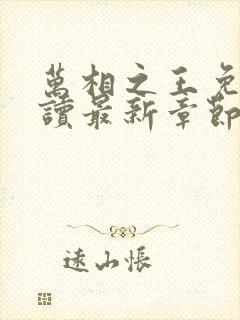 萬相之王免
讀最新章節
遠山悵